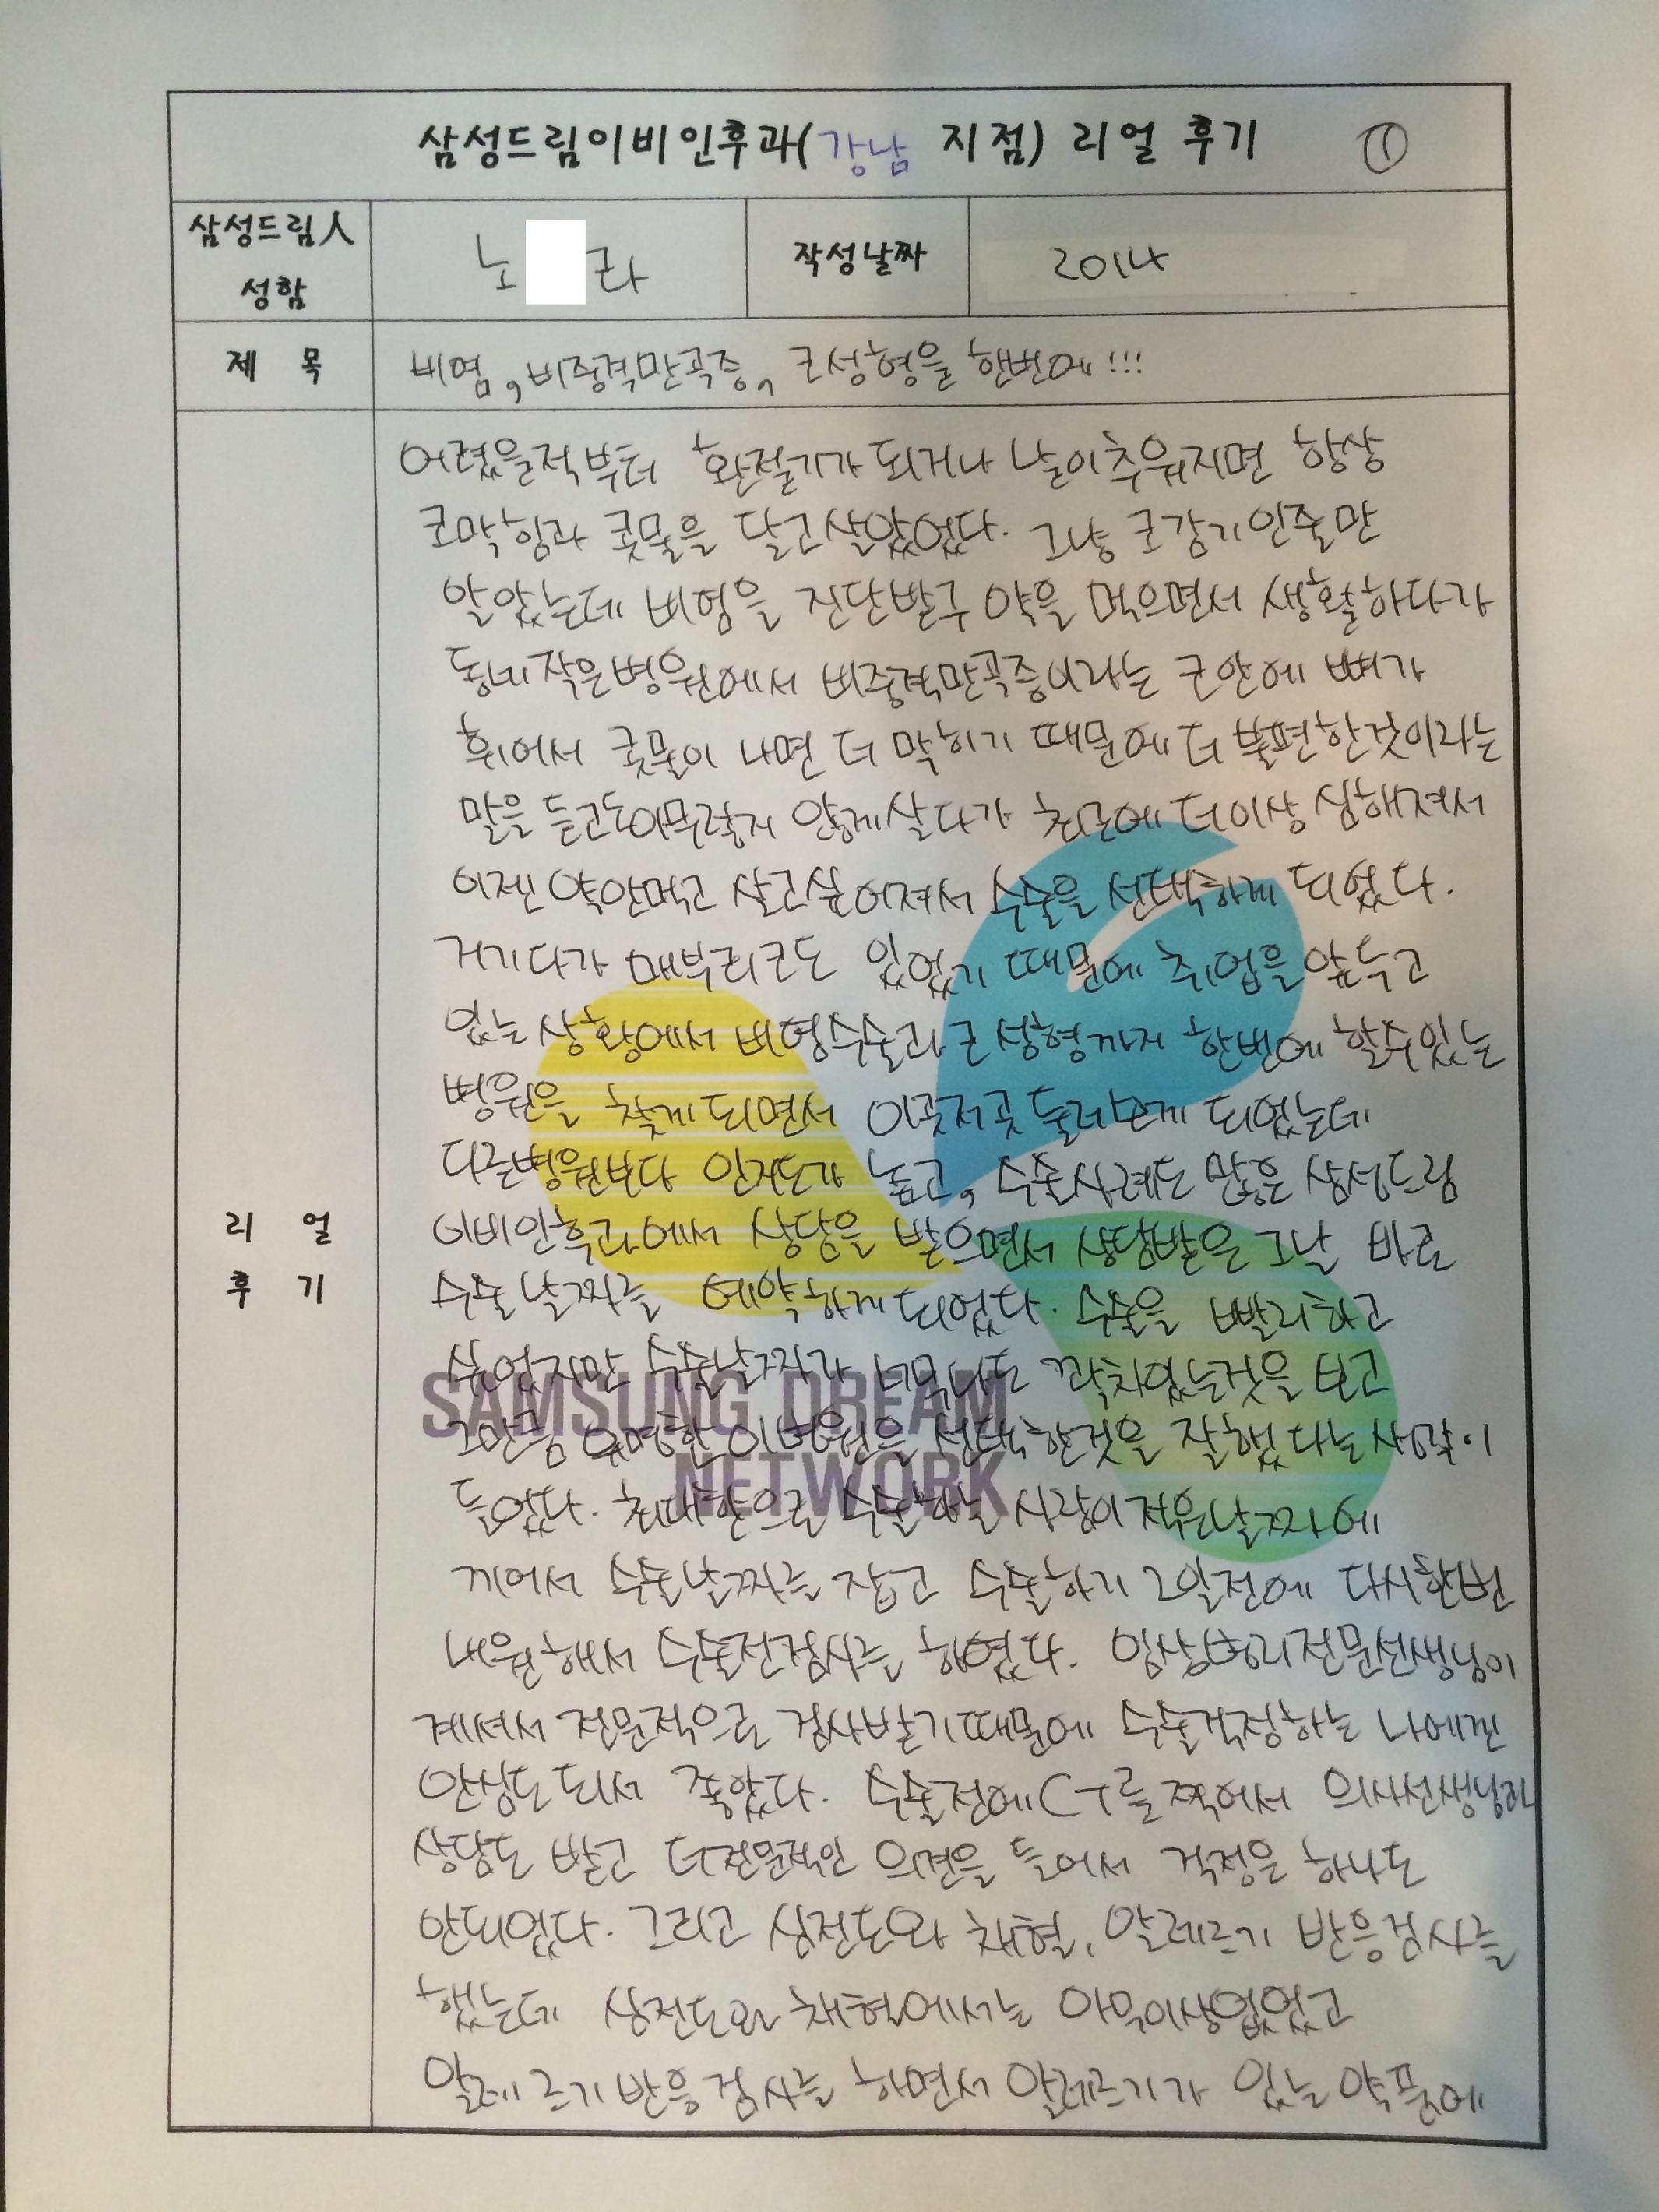 삼성드림이비인후과(강남 지점) 리얼 후기 ①
삼성드림人 성함
노 라
작성날짜
2014
제 목
비염, 비중격만곡증, 코성형을 한번에!!!
리 얼
후 기
어렸을적부터 환절기가 되거나 날이추워지면 항상
코막힘과 콧물을 달고살았었다. 그냥 코감기인줄만
알았는데 비염을 진단받구 약을 먹으면서 생활하다가
동네작은병원에서 비중격만곡증이라는 코안에 뼈가
휘어서 콧물이 나면 더 막히기 때문에 더 불편한것이라는
말을 듣고도아무렇지 않게살다가 최근에 더이상 심해져서
이젠 약안먹고 살고싶어져서 수술을 선택하게 되었다.
거기다가 매부리코도 있었기 때문에 취업을 앞두고
있는상황에서 비염수술과 코성형까지 한번에 할수있는
병원을 찾게되면서 이곳저곳 둘러보게 되었는데
다른병원보다 인지도가 높고, 수술사례도 많은 삼성드림
이비인후과에서 상담을 받으면서 상담받은 그날 바로
수술날짜를 예약하게되었다. 수술을 빨리하고
싶었지만 수술날짜가 너무나도 꽉차있는것을 보고
그만큼 유명한 이병원을 선택한것을 잘했다는 생각이
들었다. 최대한으로 수술하는 사람이 적은날짜에
끼어서 수술날짜를 잡고 수술하기 2일전에 다시한번
내원해서 수술전검사를 하였다. 임상병리전문선생님이
계셔서 전문적으로 검사받기때문에 수술걱정하는 나에겐
안심도되서 좋았다. 수술전에 CT를찍어서 의사선생님과
상담도 받고 더전문적인 의견을 들어서 걱정은 하나도
안되었다. 그리고 심전도와 채혈, 알레르기 반응검사를
했는데 심전도와 채혈에서는 아무이상없었고
알레르기반응검사를 하면서 알레르기가 있는 약품에
SAMSUNG DREAM
NETWORK